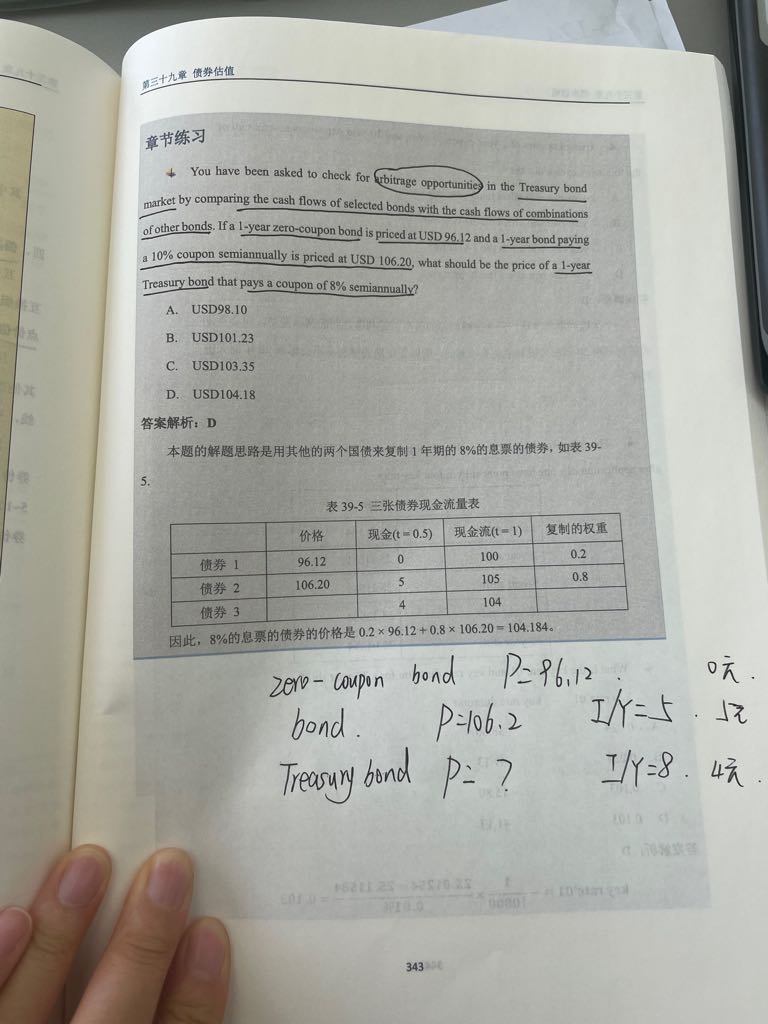 第三十九章 债券估值
章节练习
You have been asked to check for arbitrage opportunities in the Treasury bond
market by comparing the cash flows of selected bonds with the cash flows of combinations
of other bonds. If a 1-year zero-coupon bond is priced at USD 96.12 and a 1-year bond paying
a 10% coupon semiannually is priced at USD 106.20, what should be the price of a 1-year
Treasury bond that pays a coupon of 8% semiannually?
A. USD98.10
B. USD101.23
C. USD103.35
D. USD104.18
答案解析：D
本题的解题思路是用其他的两个国债来复制 1 年期的 8%的息票的债券，如表 39-
5.
表 39-5 三张债券现金流量表
价格 现金(t = 0.5) 现金流(t = 1) 复制的权重
债券 1 96.12 0 100 0.2
债券 2 106.20 5 105 0.8
债券 3 4 104
因此，8%的息票的债券的价格是 0.2 × 96.12 + 0.8 × 106.20 = 104.184。
zero-coupon bond P=96.12. 0元.
bond. P=106.2 I/Y=5. 5元
Treasury bond P=? I/Y=8. 4元.
343